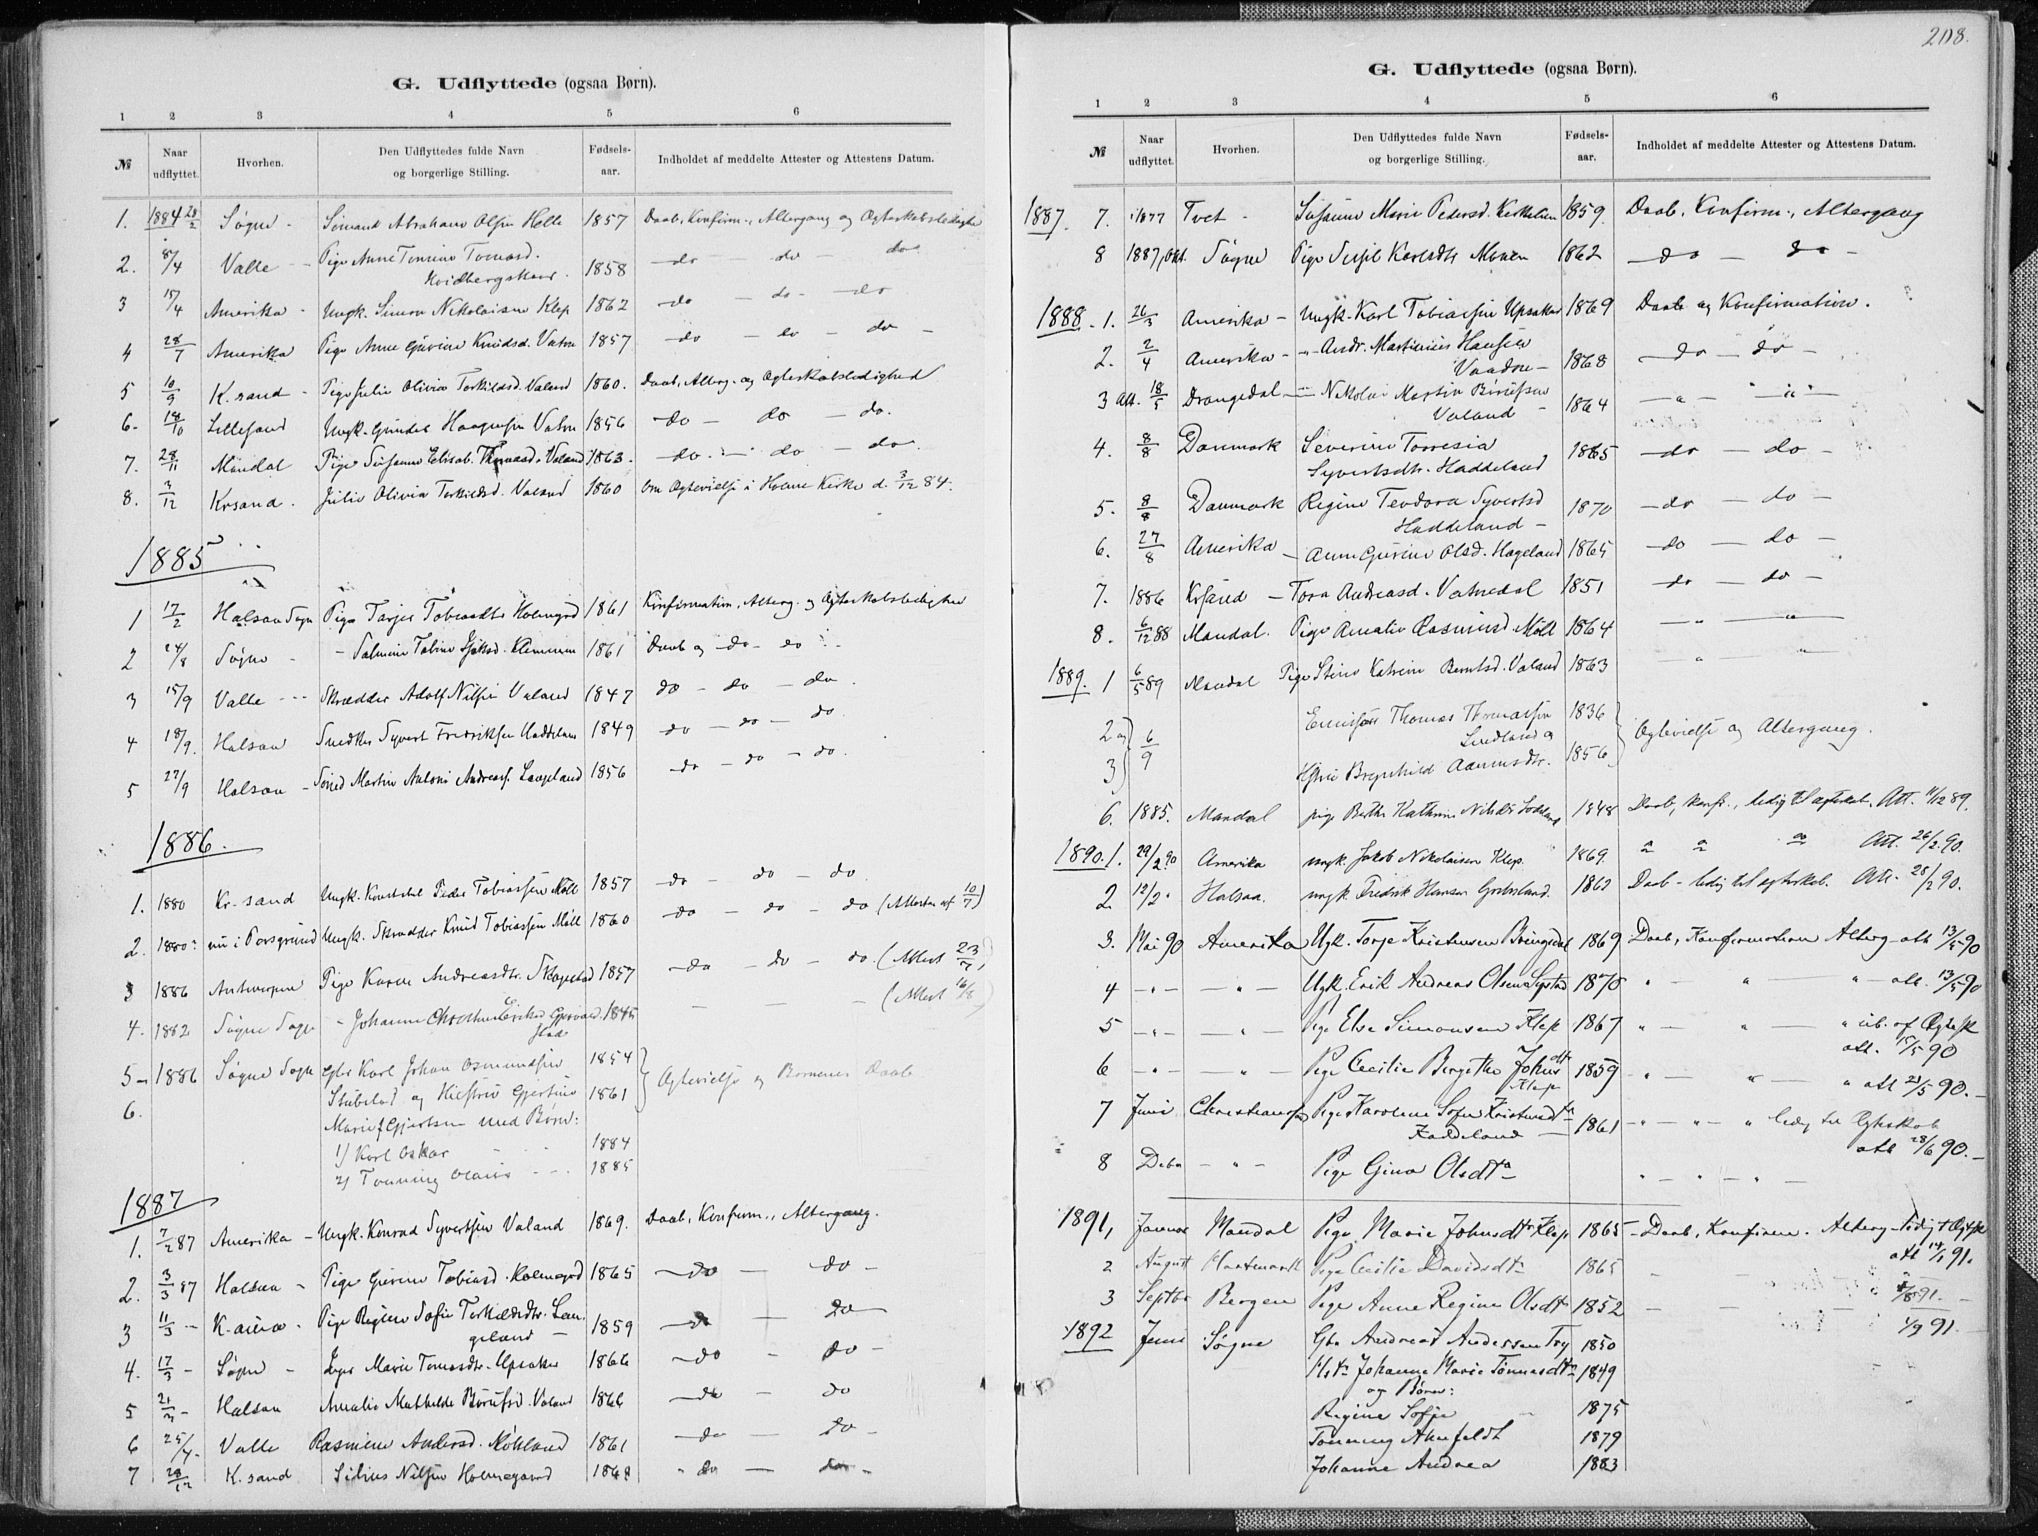 G. Udflyttede (ogsaa Børn).
1 2 3 4 5 6
№ Naar udflyttet. Hvorhen. Den Udflyttedes fulde Navn og borgerlige Stilling. Fødselsaar. Indholdet af meddelte Attester og Attestens Datum.
1. 1884 28/2 Søgne - Abraham Olsen Helle 1857 Daab, Konfirm., Altergang og Ægteskabsledighed
2. 8/4 Valle - Pige Anne Tomine Tomasd. 1858 do do do
3 15/4 Amerika - Ungk. Simon Nikolaisen Klep 1862 do - do - do
4 28/7 Amerika Pige Anne Gurine Knudsd. Vatne 1857 do - do - do -
5 10/9 K.sand - Pige Julie Olivia Terkildsd. Valand 1860. Daab, Alterg. og Ægteskabsledighed
6. 18/10 Lillesand Ungk. Gunder Haagensen Vatne 1856 do - do - do.
7. 28/11 Mandal Pige Susanne Elisab. Thomasd. Valand 1863. do. - do - do.
8. 3/12 Krsand. Julie Olivia Terkildsd. Valand 1860 Om Ægtevielse i Holme Kirke d. 3/12 84.
1885
1 17/2 Halsaa Sogn Pige Tarjer Tobiasdtr Holmegrd 1861 Konfirmation, Alterg. og Ægteskabsledighed
2 24/8 Søgne - - Salmine Tobine 1861 Daab og do - do
3 15/9 Valle - Skrædder Adolf Nilsen Valand 1847 do - do - do
4 18/9. Halsaa Smedker Syvert Fredriksen Haddeland 1849 do - do - do
5 27/9 Halsaa - Martin Andreas. Laageland 1856 do - do - do.
1886.
1. 1880 Kr.sand Ungk. Peder Tobiassen Møll 1857 do - do - do
2. 1880 nu i Porsgrund Ungk. Skrædder Knud Tobiassen Møll 1860 do - do - do (Attest 10/7)
3 1886 Antwerpen Pige Karen Andreasdtr. Skogestad 1857 do - do - do. (Attest 23/7)
4. 1882 Søgne Sogn - Johanne 1845 - - - (Attest 16/8)
5 - 1886 Søgne Sogn Gbr Karl Johan Osmundsen 1854 } Ægtevielse og Børnenes Daab
6. og Hustru Gjertine 1861
Marie Gjertsen med Børn:
1) Karl Oskar 1884
2) Tønning 1885
1887
1. 7/2 87 Amerika - Ungk. Konrad Syvertsen Valand 1869. Daab, Konfirm., Altergang.
2. 3/3 87 Halsaa - Pige Gurine Tobiasd. Holmegrd 1865 do - do -
3 11/3 - Pige Regine Sofie Terkildsdtr. Lan- do - do
geland - 1859
4. 17/3 - Søgne - Marie Tomasdtr. Upsaker 1866 do - do -
5 21/3 - Halsaa Amalie Mathilde Børufsd. Valand 1866 do - do
6 25/4 - Valle Rasmine Andersd. Møkland 1861 do - do -
7 28/12 K.sand Silius Nilsen Holmegaard 1868 do - do -
208.
G. Udflyttede (ogsaa Børn).
1 2 3 4 5 6
№ Naar udflyttet. Hvorhen. Den Udflyttedes fulde Navn og borgerlige Stilling. Fødselsaar. Indholdet af meddelte Attester og Attestens Datum.
1887. 7. 1877 Tvet - Susanne Marie Pedersd. 1859. Daab, Konfirm., Altergang
8 1887, Okt. Søgne Pige Karlsdtr Moen 1862 do - do -
1888 - 1. 26/3 Amerika - Ungk. Karl Tobiassen Upsaker 1869 Daab og Konfirmation.
2. 2/4 Amerika - - Andr. Martinius Hansen
Vaadne - 1868 do - do -
3 Att. 18/5 Drangedal - Nikolai Martin Børufsen
Valand - 1864 - " - " -
4. 8/8 Danmark Severine Torresia
Syvertsdtr. Haddeland 1865 - do - do -
5. 8/8 Danmark Regine Teodora Syvertsd
Haddeland - 1870 - do - do -
6. 27/8 Amerika - Anne Gurine Olsd. Hageland 1865 do - do -
7. 1886 Krsand - Tora Andreasd. Vatnedal 1851 do - do -
8. 6/12 88 Mandal. Pige Amalie Rasmusd. Møll 1864 - " - "
1889. 1 6/5 89 Mandal Pige Stine Katrine Berntsd. Valand 1863 - " - "
2 og } 6/9 Thomas Thomassen 1836 } Ægtevielse og Altergang.
Lindland og
3 Hstru Bergnhild Aanensdtr. 1856
6. 1885. Mandal pige Berthe Kathrine Nilsdtr 1848 Daab, konfr., ledig til ægteskab. Att. 11/12 89.
1890. 1. 29/2 90 Amerika ungk. Jakob Nikolaisen Klep. 1869. " " " Att. 26/2 90.
2 12/2 " Halsaa. ungk. Fredrik Hansen 1862 Daab - ledig til ægteskab. Att. 28/2 90.
3. Mai 90 Amerika Ugk. Torje Kristensen Bringsdal 1869 Daab, Konfirmation Alterg - att 13/5 90
4 - " - - " - Ugk. Erik Andreas Olsen 1870 " - " - " - att. 13/5 90
5 - " - - " - Pige Else Simonsen Klep 1867 " - " - " üb. af Ægtesk
att. 15/5 90
6 - " - - " - Pige Cecilie Bergithe Johnsdtr
Klep 1859 " - " - " att 23/5 90. -
7 Juni Christianssa Pige Karoline Sofie Kristensdtr
Haddeland - 1861 - " - " - " ledig til Ægteskab
att 28/6 90. -
8 Pige Gina Olsdtr - " - " - " -
1891, Januar Mandal Pige Marie Johnsdtr. Klep 1865 - Daab, Konfirm. Alterg - ledig t Ægtsk
att 14/1 91.
2 August Pige Cecilie Davidsdtr 1865 - - - 8/8 91. -
3 Septbr Bergen Pige Anne Regine Olsdtr 1852 - - - 1/9 91. -
1892 Juni Søgne Gbr Andreas Andersen Try 1850
Hstr Johanne Marie Tønnesdtr 1849
og Børn:
Regine Sofie - 1875
Tønning 1879
Johanne Andrea 1883